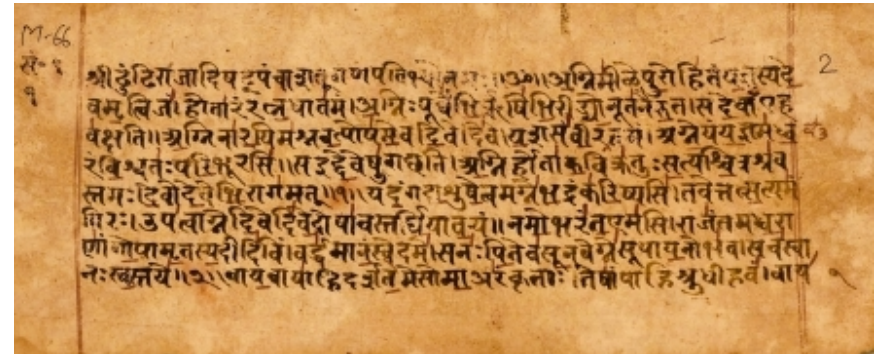 M-66
सं॰ १
१
2
श्री ढुंढिराजादिषट्पंचाशत गणपतिभ्यो नमः ॥ॐ॥ अग्निमीळे पुरोहितं यज्ञस्य दे
वमृत्विजं । होतारं रत्नधातमं । अग्निः पूर्वेभिर्ऋषिभिरीड्यो नूतनैरुत । स देवाँ एह
वक्षति ॥ अग्निना रयिमश्नवत्पोषमेव दिवे दिवे । यशसं वीरवत्तमं । अग्ने यं यज्ञमध्व
रं विश्वतः परिभूरसि ॥ स इद्देवेषु गच्छति । अग्निर्होता कविक्रतुः सत्यश्चित्रश्रव
स्तमः देवो देवेभिरागमत् ॥१॥ यदंग दाशुषे त्वमग्ने भद्रं करिष्यसि । तवेत्तत्सत्यमं
गिरः । उप त्वाग्ने दिवे दिवे दोषावस्तर्धिया वयं ॥ नमो भरंत एमसि । राजंतमध्वरा
णां गोपामृतस्य दीदिविं । वर्द्धमानं स्वे दमे । स नः पितेव सूनवेग्ने सूपायनो भव । सचस्वा
नः स्वस्तये ॥२॥ वायवायाहि दर्शतेमे सोमा अरंकृताः तेषां पाहि श्रुधी हवं । वाय